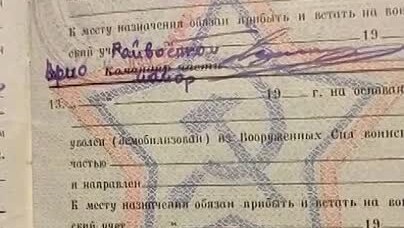 К месту назначения обязан прибыть и встать на воин
ский уч Райвоенком 19
Врио Командир части
майор
13. „ " 19 г. на основан
уволен (демобилизован) из Вооруженных Сил воинск
частью
и направлен
К месту назначения обязан прибыть и встать на вои
ский учет „ " 19